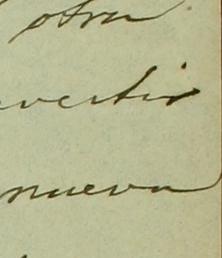 otra
vertir
nueva